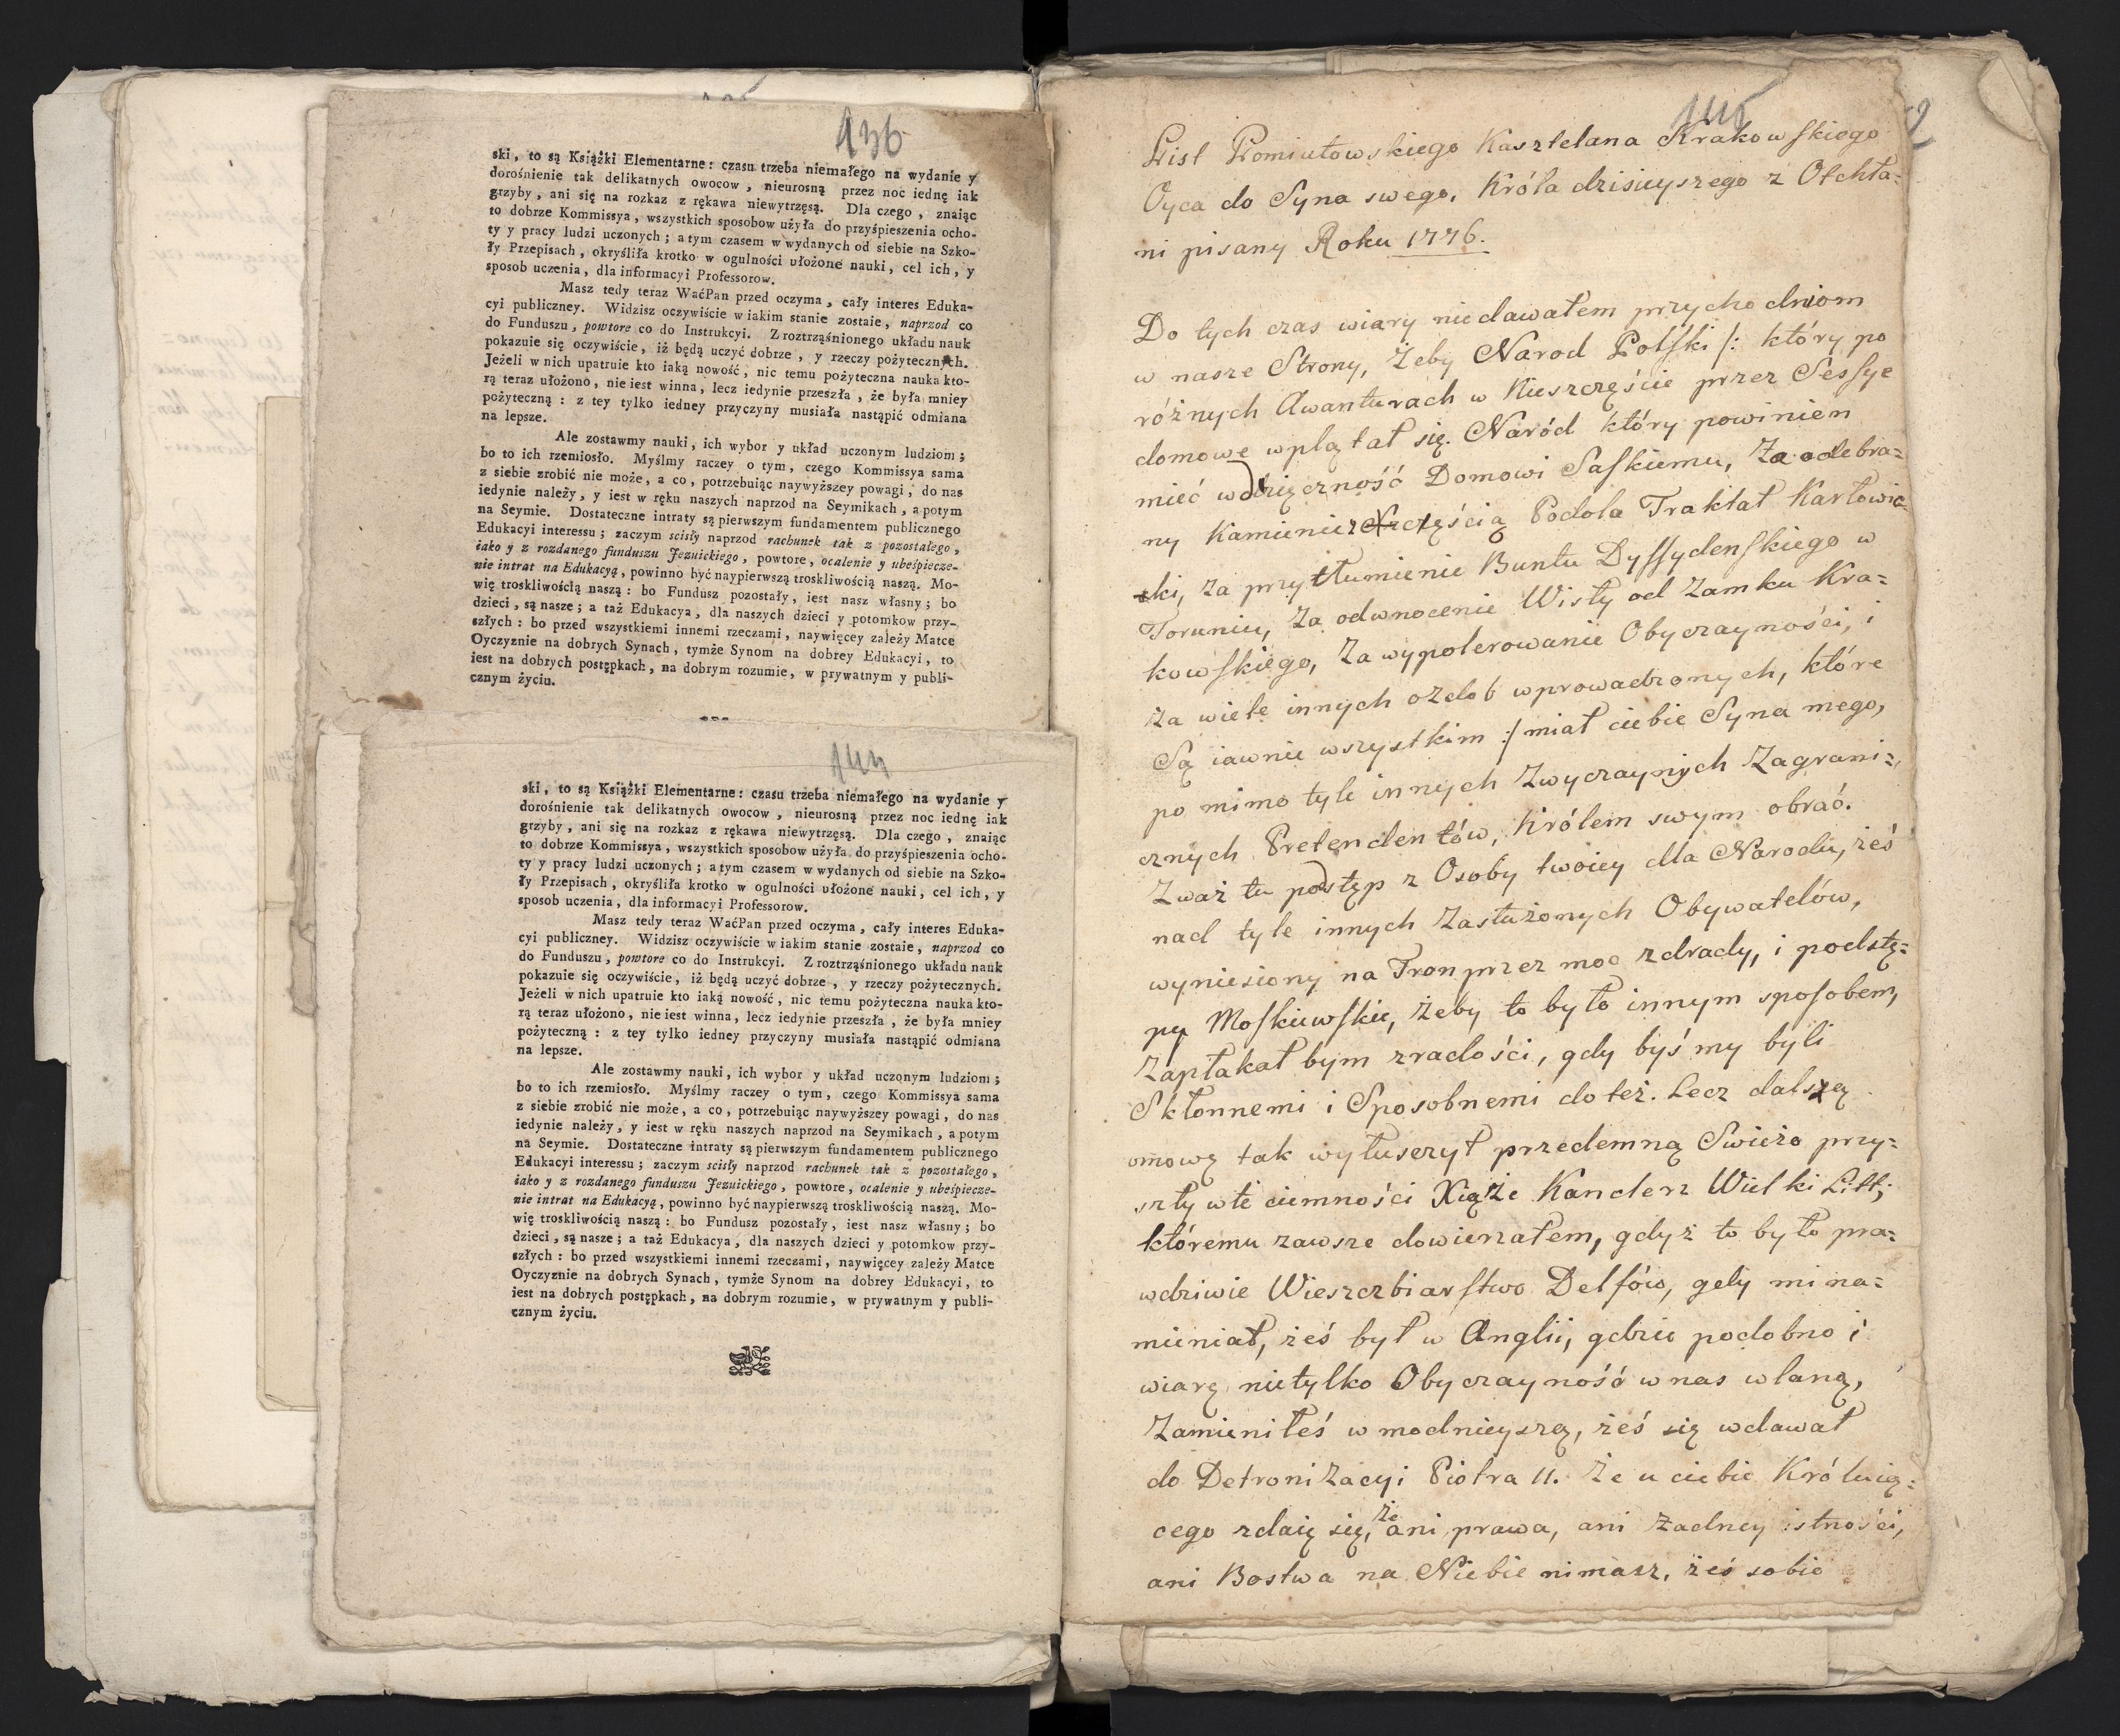 136
ski, to są Książki Elementarne: czasu trzeba niemałego na wydanie y
dorośnienie tak delikatnych owocow, nieurosną przez noc iednę iak
grzyby, ani się na rozkaz z rękawa niewytrzęsą. Dla czego, znaiąc
to dobrze Kommissya, wszystkich sposobow użyła do przyśpieszenia ocho-
ty y pracy ludzi uczonych; a tym czasem w wydanych od siebie na Szko-
ły Przepisach, okryśliła krotko w ogulności ułożone nauki, cel ich, y
sposob uczenia, dla informacyi Professorow.
Masz tedy teraz WaćPan przed oczyma, cały interes Eduka-
cyi publiczney. Widzisz oczywiście w iakim stanie zostaie, naprzod co
do Funduszu, powtore co do Instrukcyi. Z roztrząśnionego układu nauk
pokazuie się oczywiście, iż będą uczyć dobrze, y rzeczy pożytecznych.
Jeżeli w nich upatruie kto iaką nowość, nic temu pożyteczna nauka kto-
rą teraz ułożono, nie iest winna, lecz iedynie przeszła, że była mniey
pożyteczną: z tey tylko iedney przyczyny musiała nastąpić odmiana
na lepsze.
Ale zostawmy nauki, ich wybor y układ uczonym ludziom;
bo to ich rzemiosło. Myślmy raczey o tym, czego Kommissya sama
z siebie zrobić nie może, a co, potrzebuiąc naywyższey powagi, do nas
iedynie należy, y iest w ręku naszych naprzod na Seymikach, a potym
na Seymie. Dostateczne intraty są pierwszym fundamentem publicznego
Edukacyi interessu; zaczym scisły naprzod rachunek tak z pozostałego,
iako y z rozdanego funduszu Jezuickiego, powtore, ocalenie y ubeśpiecze-
nie intrat na Edukacyą, powinno być naypierwszą troskliwością naszą. Mo-
wię troskliwością naszą: bo Fundusz pozostały, iest nasz własny; bo
dzieci, są nasze; a taż Edukacya, dla naszych dzieci y potomkow przy-
szłych: bo przed wszystkiemi innemi rzeczami, naywięcey zależy Matce
Oyczyznie na dobrych Synach, tymże Synom na dobrey Edukacyi, to
iest na dobrych postępkach, na dobrym rozumie, w prywatnym y publi-
cznym życiu.
144
ski, to są Książki Elementarne: czasu trzeba niemałego na wydanie y
dorośnienie tak delikatnych owocow, nieurosną przez noc iednę iak
grzyby, ani się na rozkaz z rękawa niewytrzęsą. Dla czego, znaiąc
to dobrze Kommissya, wszystkich sposobow użyła do przyśpieszenia ocho-
ty y pracy ludzi uczonych; a tym czasem w wydanych od siebie na Szko-
ły Przepisach, okryśliła krotko w ogulności ułożone nauki, cel ich, y
sposob uczenia, dla informacyi Professorow.
Masz tedy teraz WaćPan przed oczyma, cały interes Eduka-
cyi publiczney. Widzisz oczywiście w iakim stanie zostaie, naprzod co
do Funduszu, powtore co do Instrukcyi. Z roztrząśnionego układu nauk
pokazuie się oczywiście, iż będą uczyć dobrze, y rzeczy pożytecznych.
Jeżeli w nich upatruie kto iaką nowość, nic temu pożyteczna nauka kto-
rą teraz ułożono, nie iest winna, lecz iedynie przeszła, że była mniey
pożyteczną: z tey tylko iedney przyczyny musiała nastąpić odmiana
na lepsze.
Ale zostawmy nauki, ich wybor y układ uczonym ludziom;
bo to ich rzemiosło. Myślmy raczey o tym, czego Kommissya sama
z siebie zrobić nie może, a co, potrzebuiąc naywyższey powagi, do nas
iedynie należy, y iest w ręku naszych naprzod na Seymikach, a potym
na Seymie. Dostateczne intraty są pierwszym fundamentem publicznego
Edukacyi interessu; zaczym scisły naprzod rachunek tak z pozostałego,
iako y z rozdanego funduszu Jezuickiego, powtore, ocalenie y ubeśpiecze-
nie intrat na Edukacyą, powinno być naypierwszą troskliwością naszą. Mo-
wię troskliwością naszą: bo Fundusz pozostały, iest nasz własny; bo
dzieci, są nasze; a taż Edukacya, dla naszych dzieci y potomkow przy-
szłych: bo przed wszystkiemi innemi rzeczami, naywięcey zależy Matce
Oyczyznie na dobrych Synach, tymże Synom na dobrey Edukacyi, to
iest na dobrych postępkach, na dobrym rozumie, w prywatnym y publi-
cznym życiu.
145
List Poniatowskiego Kasztelana Krakowskiego
Oyca do Syna swego, Króla dzisieyszego z Otchła=
ni pisany Roku 1776.
Do tych czas wiary niedawałem przychodniom
w nasze Strony, Żeby Narod Polski /: który po
różnych Awanturach w Nieszczęście przez Sessye
domowe wplątał się. Naród który powinien
mieć wdzięczność Domowi Saskiemu, Za odebra=
ny Kamieniec z częścią Podola Traktat Karłowic=
ki, Za przytłumienie Buntu Dyssydenskiego w
Toruniu, Za odwnocenie Wisły od Zamku Kra=
kowskiego, Za wypolerowanie Obyczayności, i
Za wiele innych ozdob wprowadzonych, które
Są iawnie wszystkim :/ miał ciebie Syna mego,
po mimo tyle innych Zwyczaynych Zagrani=
cznych Pretendentów, Królem swym obrać.
Zważ tu postęp z Osoby twoiey dla Narodu, żeś
nad tyle innych Zasłużonych Obywatelów,
wyniesiony na Tron przez moc zdrady, i podstę=
py Moskiewskie, Żeby to było innym sposobem,
Zapłakał bym zradości, gdy byśmy byli
Skłonnemi i Sposobnemi do łez. Lecz dalszą
omowę tak wyłuszył przedemną Swieżo przy=
szły w te ciemności Xiąże Kanclerz Wielki Litt;
któremu zawsze dowierzałem, gdyż to było pra=
wdziwie Wieszczbiarstwo Delfów, gdy mi na=
mieniał, żeś był w Anglii, gdzie podobno i
wiarę nietylko Obyczayność w nas wlaną,
Zamieniłeś w modnieyszą, żeś się wdawał
do Detronizacyi Piotra II. Że u ciebie Króluią=
cego zdaię się, że ani prawa, ani żadney istności,
ani Bostwa na Niebie nimasz, żeś sobie